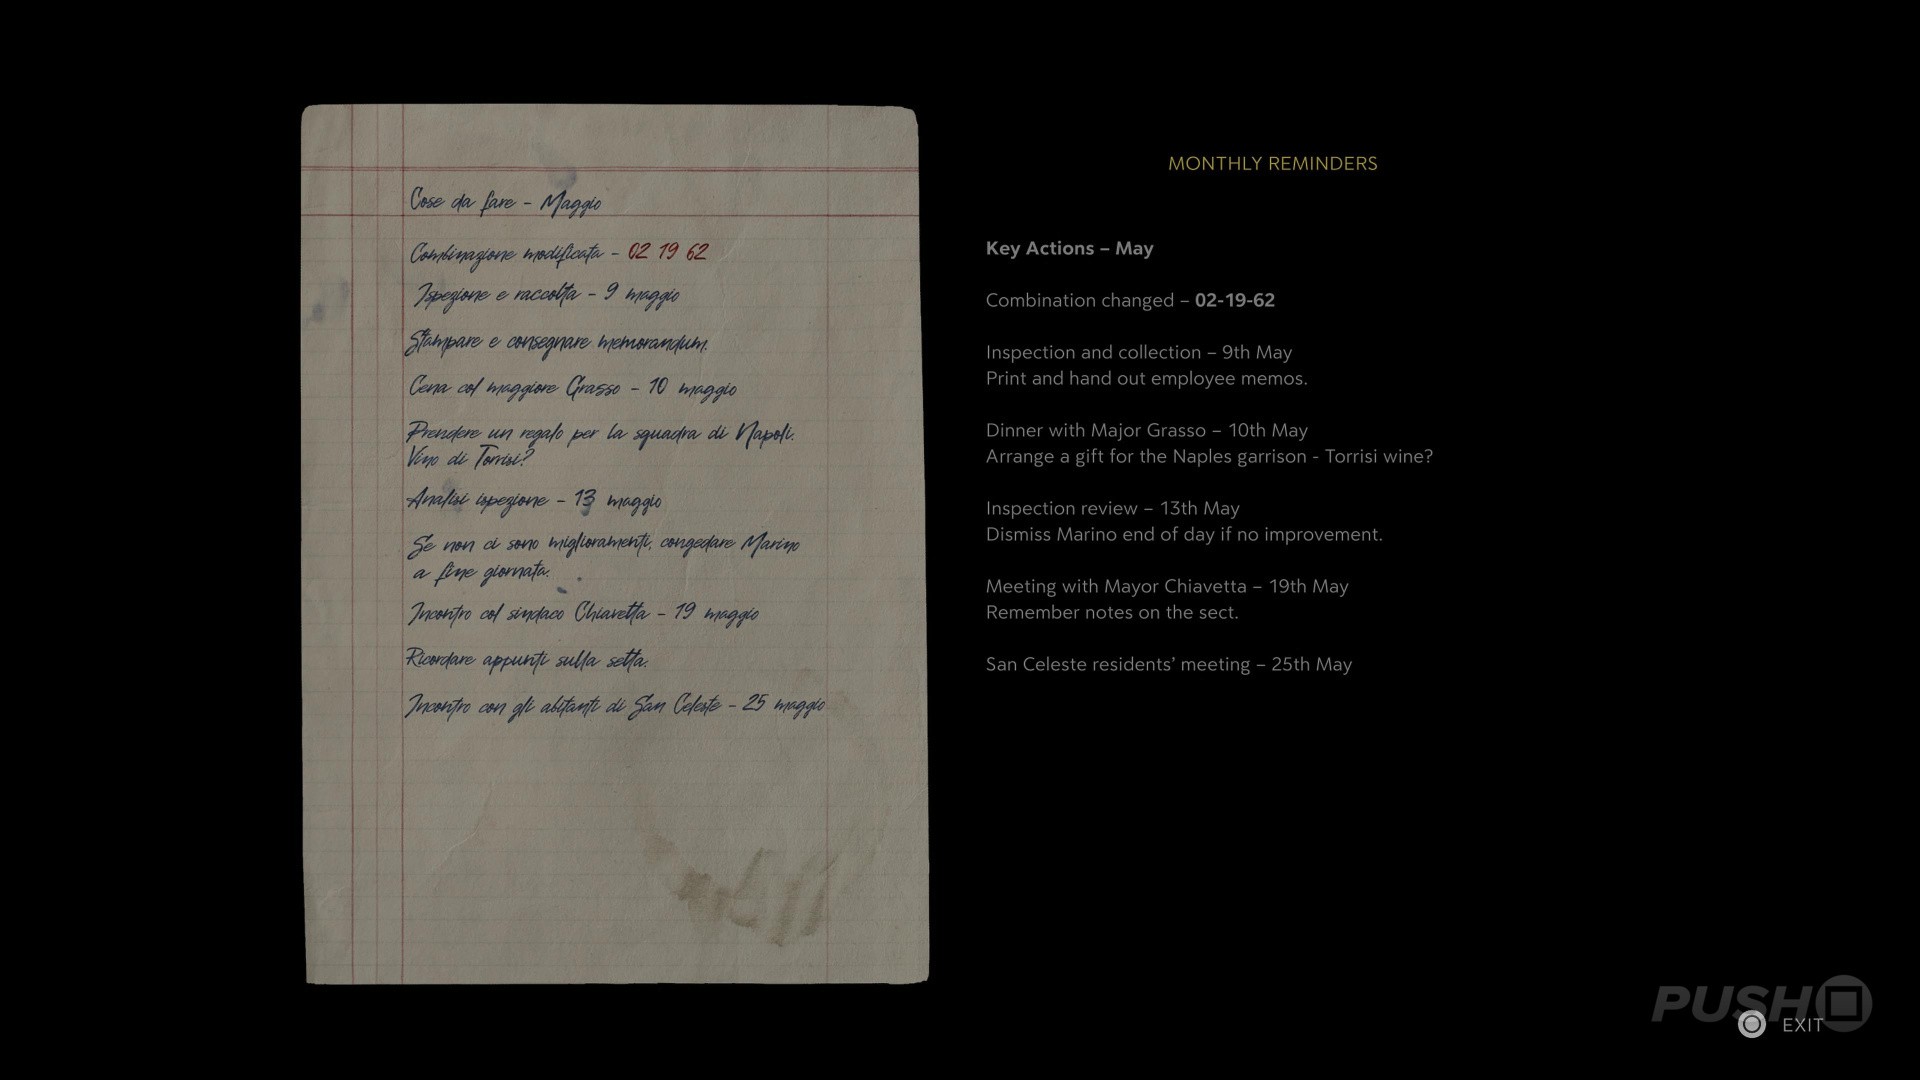 Cose da fare - Maggio
Combinazione modificata - 02 19 62
Ispezione e raccolta - 9 maggio
Stampare e consegnare memorandum.
Cena col maggiore Grasso - 10 maggio
Prendere un regalo per la squadra di Napoli.
Vino di Torrisi?
Analisi ispezione - 13 maggio
Se non ci sono miglioramenti, congedare Marino
a fine giornata.
Incontro col sindaco Chiavetta - 19 maggio
Ricordare appunti sulla setta.
Incontro con gli abitanti di San Celeste - 25 maggio
MONTHLY REMINDERS
Key Actions – May
Combination changed – 02-19-62
Inspection and collection – 9th May
Print and hand out employee memos.
Dinner with Major Grasso – 10th May
Arrange a gift for the Naples garrison - Torrisi wine?
Inspection review – 13th May
Dismiss Marino end of day if no improvement.
Meeting with Mayor Chiavetta – 19th May
Remember notes on the sect.
San Celeste residents’ meeting – 25th May
PUSH
EXIT